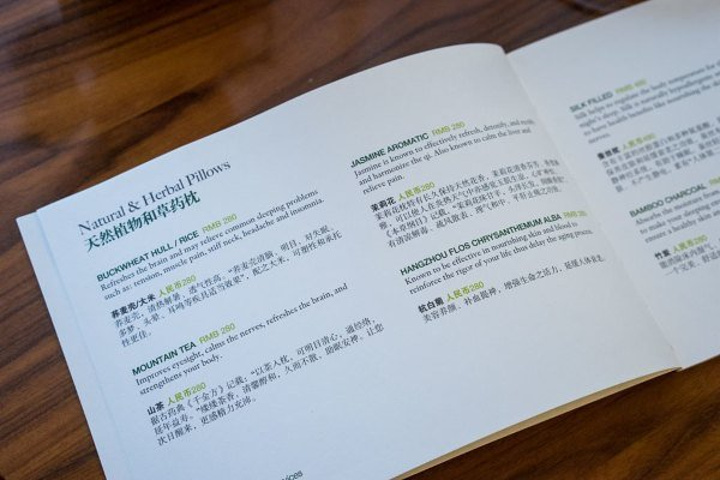 Natural & Herbal Pillows
天然植物和草药枕
BUCKWHEAT HULL / RICE RMB 280
Refreshes the brain and may relieve common sleeping problems
such as: tension, muscle pain, stiff neck, headache and insomnia.
荞麦壳/大米 人民币280
荞麦壳，清热解暑，透气性高，“荞麦壳清脑，明目，对失眠、
多梦、头晕、耳鸣等疾具适当效果”，配之大米，可塑性和承托
性更佳。
MOUNTAIN TEA RMB 280
Improves eyesight, calms the nerves, refreshes the brain, and
strengthens your body.
山茶 人民币280
据古药典《千金方》记载：“以茶入枕，可明目清心，通经络，
延年益寿。”缕缕茶香，清馨醇和，久而不散，助眠安神。让您
次日醒来，更感精力充沛。
JASMINE AROMATIC RMB 280
Jasmine is known to effectively refresh, detoxify, and
and harmonize the qi. Also known to calm the liver and
relieve pain.
茉莉花 人民币280
茉莉花枕特有长久保持天然花香，茉莉花清香芬芳，
《本草纲目》记载，“茉莉花味甘平，
有清热解毒、疏风散表、理气和中、平肝止痛之功效。
HANGZHOU FLOS CHRYSANTHEMUM ALBA RMB 280
Known to be effective in nourishing skin and blood to
reinforce the rigor of your life thus delay the aging process.
杭白菊 人民币280
美容养颜、补血提神，增强生命之活力，延缓人体衰老。
SILK FILLED RMB 480
Silk helps to regulate the body temperature for
night's sleep. Silk is naturally hypoallergenic
to have health benefits like nourishing the skin
BAMBOO CHARCOAL RMB
Absorbs the moisture from
to make your deepest
ensure a healthy skin
竹炭 人民币280